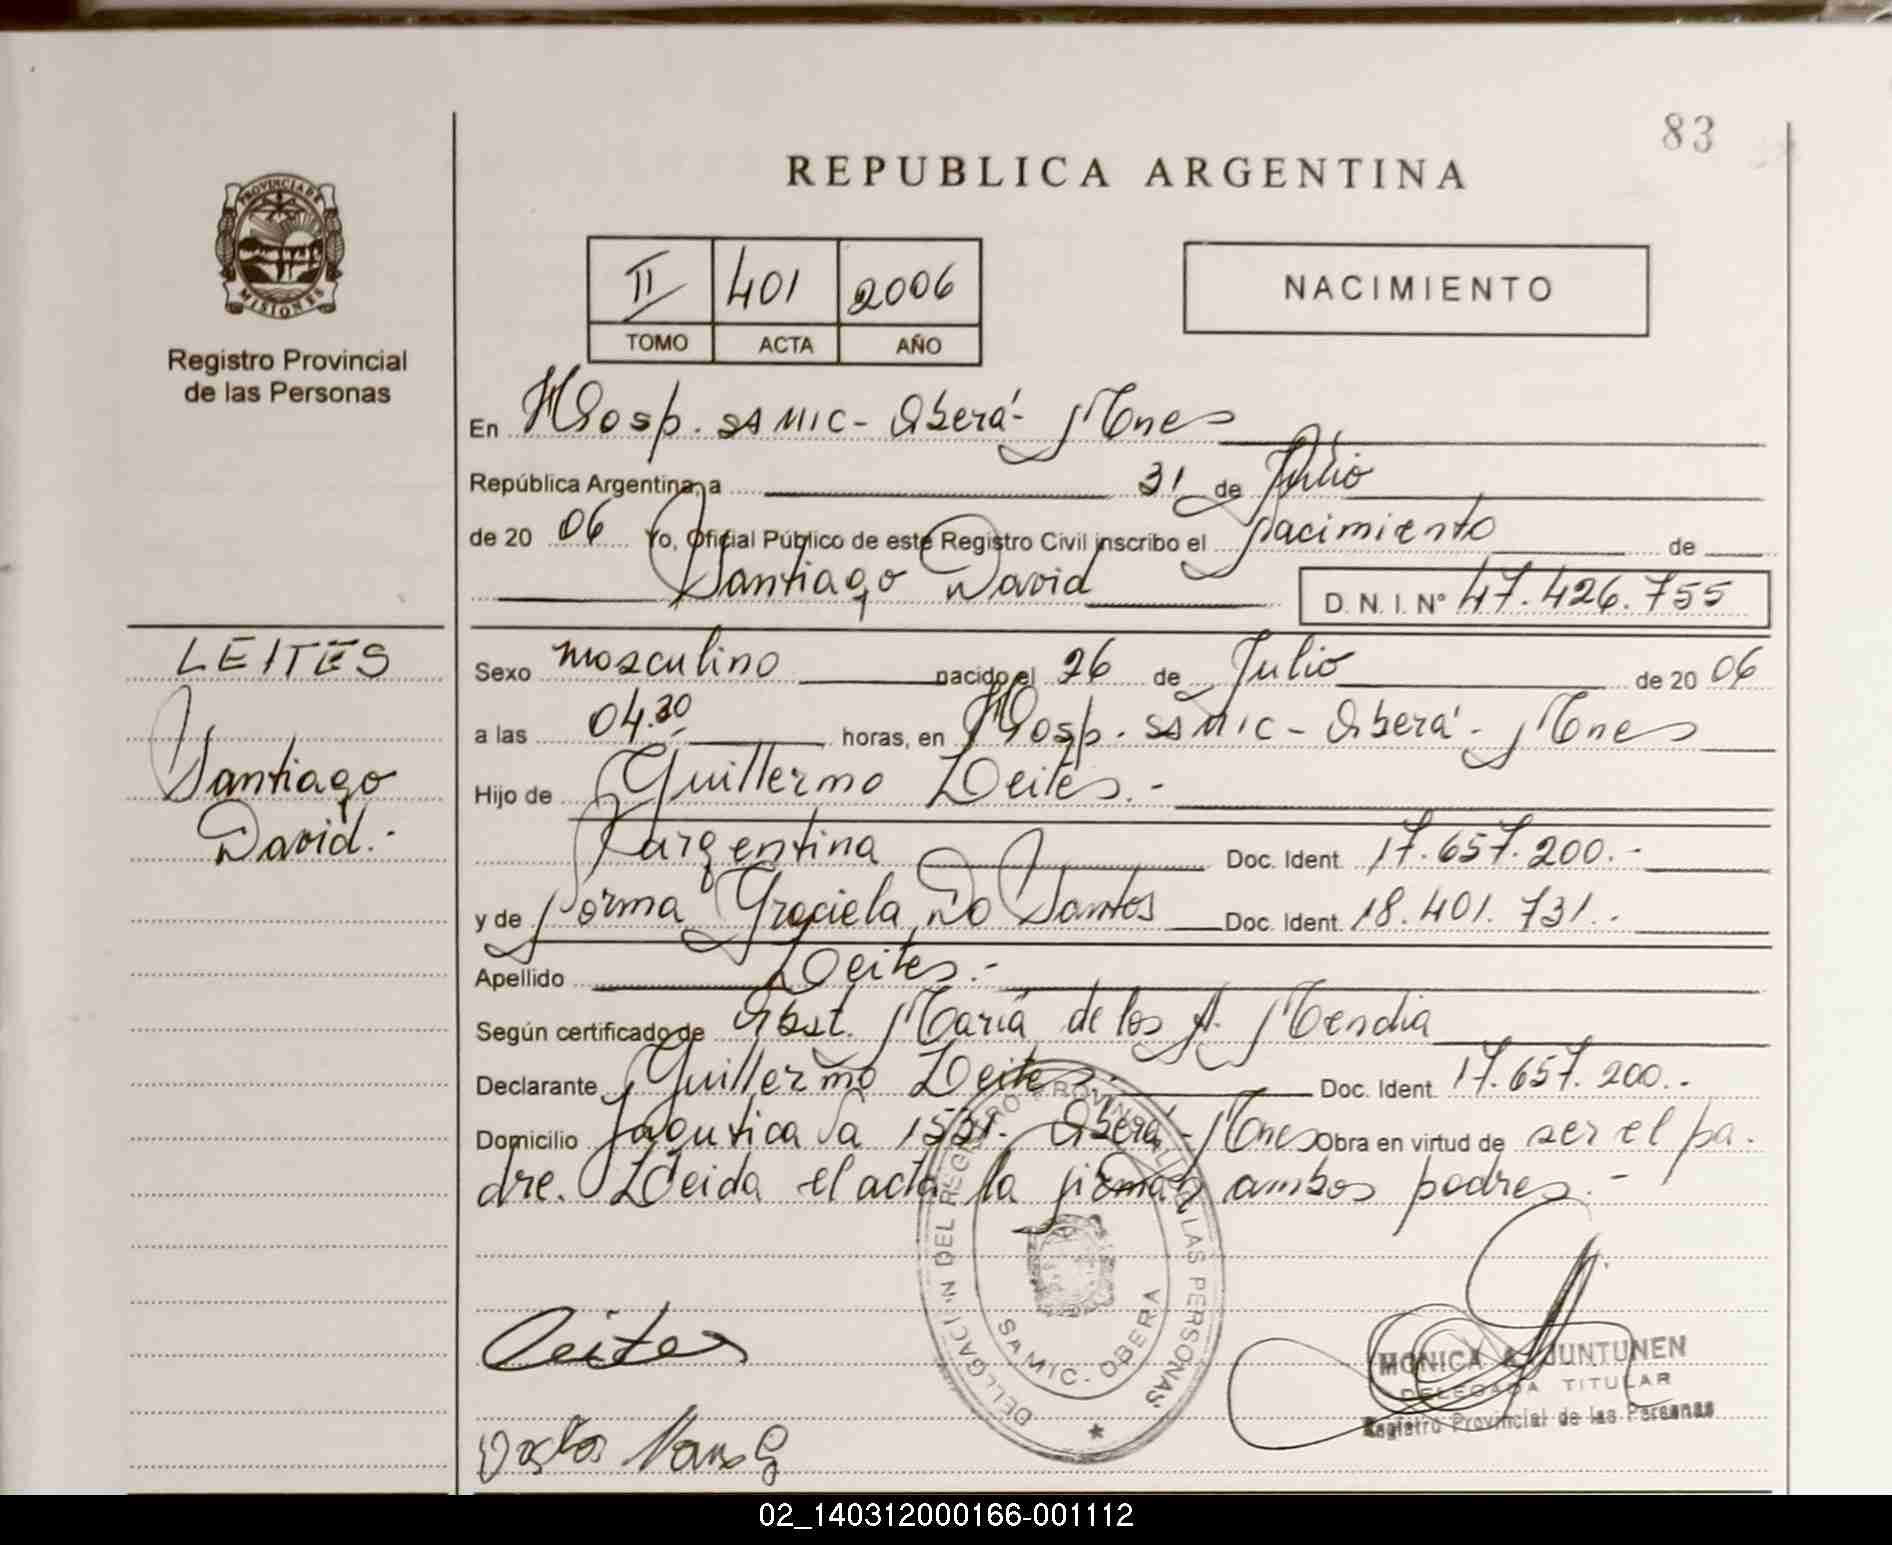 83
REPUBLICA ARGENTINA
PROVINCIA DE
MISIONES
Registro Provincial
de las Personas
II 401 2006
TOMO ACTA AÑO
NACIMIENTO
En Hosp. SAMIC - Oberá - Mnes
República Argentina, a 31 de Julio
de 20 06 Yo, Oficial Público de este Registro Civil inscribo el nacimiento de
Santiago David D. N. I. N° 47.426.755
LEITES
Santiago
David.-
Sexo masculino nacido el 26 de Julio de 20 06
a las 04.30 horas, en Hosp. SAMIC - Oberá - Mnes
Hijo de Guillermo Leites.-
argentina Doc. Ident. 17.657.200.-
y de Norma Graciela Do Santos Doc. Ident. 18.401.731.-
Apellido Leites.-
Según certificado de Obst. María de los A. Mendia
Declarante Guillermo Leites.- Doc. Ident. 17.657.200.-
Domicilio Oberá - Mnes Obra en virtud de ser el pa-
dre. Leida el acta la firman ambos padres.-
DELEGACION DEL REGISTRO PROVINCIAL DE LAS PERSONAS
SAMIC - OBERA
Leites
MONICA A. JUNTUNEN
DELEGADA TITULAR
Registro Provincial de las Personas
02_140312000166-001112